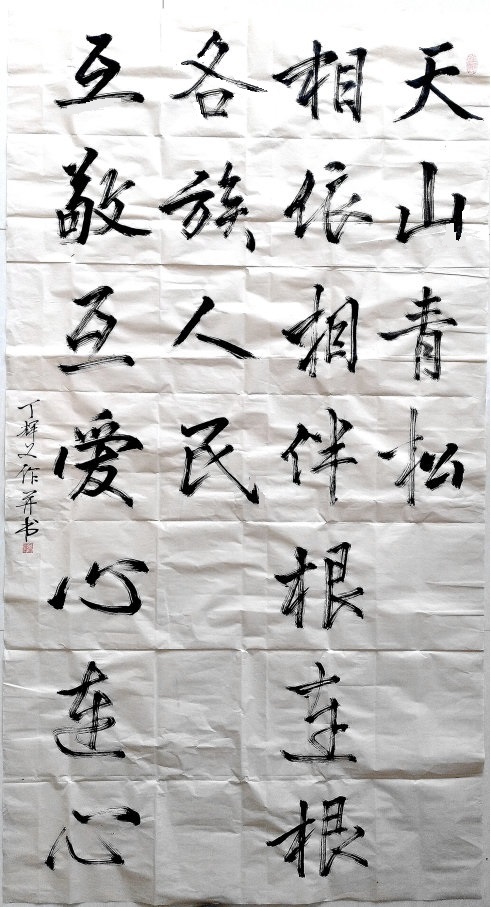 天山青松
相依相伴根连根
各族人民
互敬互爱心连心
丁择义作并书